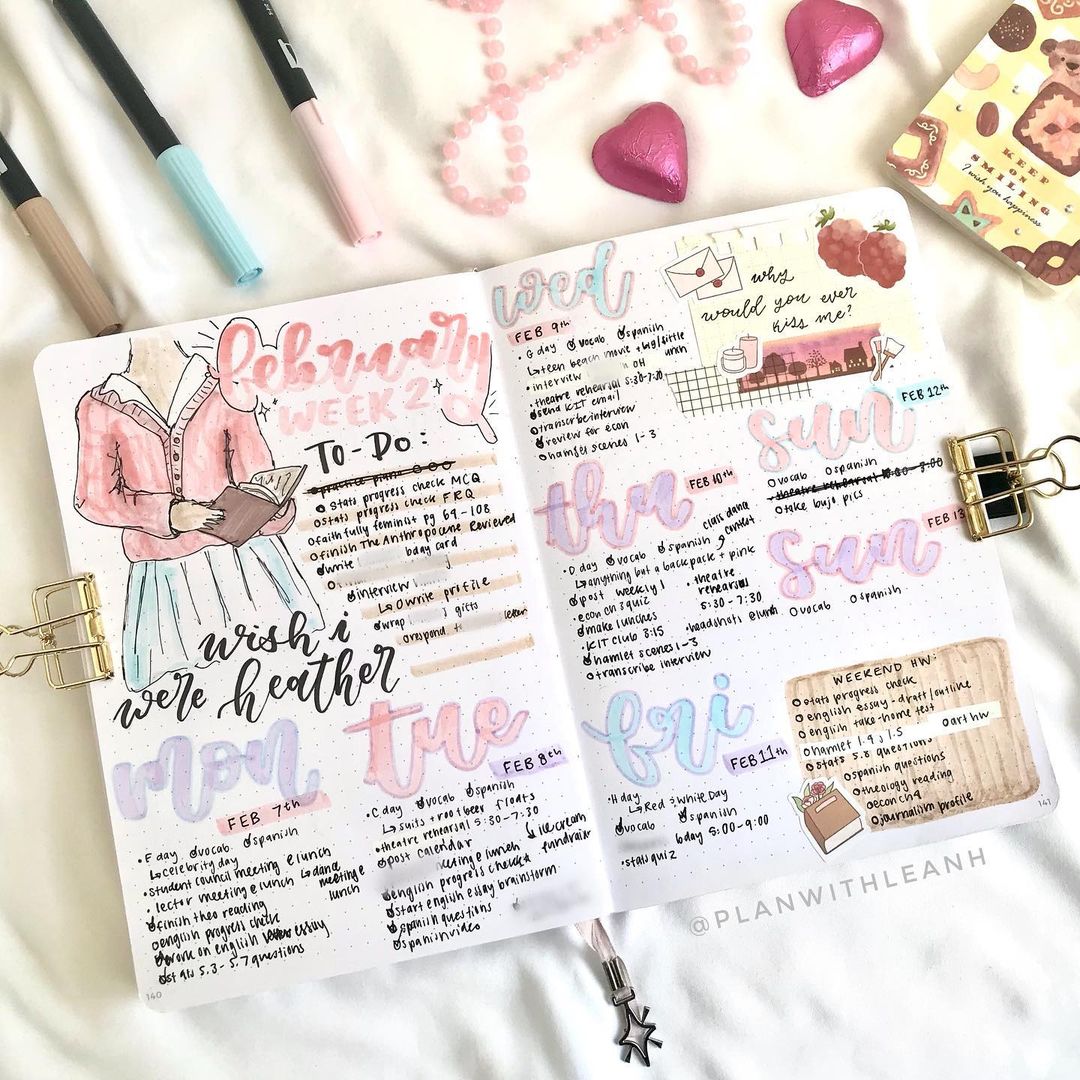 february
WEEK 2
TO-DO:
stats progress check MCQ
stats progress check FRQ
faithfully feminist pg 64-108
finish The Anthropocene Reviewed
write bday card
interview
↳ write profile
wrap gifts
respond letter
wish i
were heather
mon
FEB 7th
• E day vocab spanish
↳ celebrity day
• student council meeting @ lunch
• lector meeting @ lunch ↳ dance meeting @ lunch
finish theo reading
english progress check
work on english essay
stats 5.3-5.7 questions
140
tue
FEB 8th
• C day vocab spanish
↳ suits + root beer floats
• theatre rehearsal 5:30-7:30
post calendar ↳ ice cream fundraiser
meeting @ lunch
english progress check
start english essay brainstorm
spanish questions
spanish video
wed
FEB 9th
• G day vocab spanish
↳ teen beach movie + big/little
• interview OH
• theatre rehearsal 5:30-7:30
send KIT email
transcribe interview
review for econ
hamlet scenes 1-3
why
would you ever
kiss me?
thu
FEB 10th
• D day vocab spanish class dance contest
↳ anything but a backpack + pink
post weekly 1
• econ ch 3 quiz
make lunches
• KIT club 3:15
hamlet scenes 1-3
transcribe interview
• theatre
rehearsal
5:30-7:30
• headshots @ lunch
fri
FEB 11th
• H day
↳ Red & White Day
vocab spanish
bday 5:00-9:00
• stats quiz
sun
FEB 12th
vocab spanish
theatre rehearsal
take bujo pics
sun
FEB 13
vocab spanish
WEEKEND HW:
stats progress check
english essay - draft/outline
english take-home test
art hw
hamlet 1.4, 1.5
stats 5.8 questions
spanish questions
theology reading
econ ch 4
journalism profile
141
KEEP
ON
SMILING
I wish you happiness
@PLANWITHLEANH